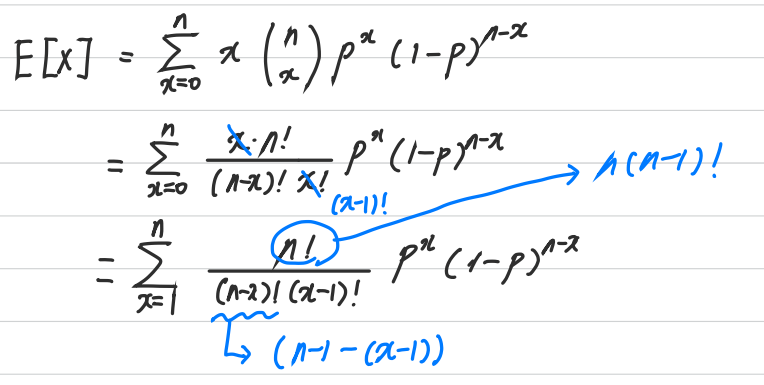 E[X] = \sum_{x=0}^{n} x \binom{n}{x} p^x (1-p)^{n-x}
= \sum_{x=0}^{n} \frac{x \cdot n!}{(n-x)! x!} p^x (1-p)^{n-x}
(x-1)!
n(n-1)!
= \sum_{x=1}^{n} \frac{n!}{(n-x)! (x-1)!} p^x (1-p)^{n-x}
(n-1-(x-1))